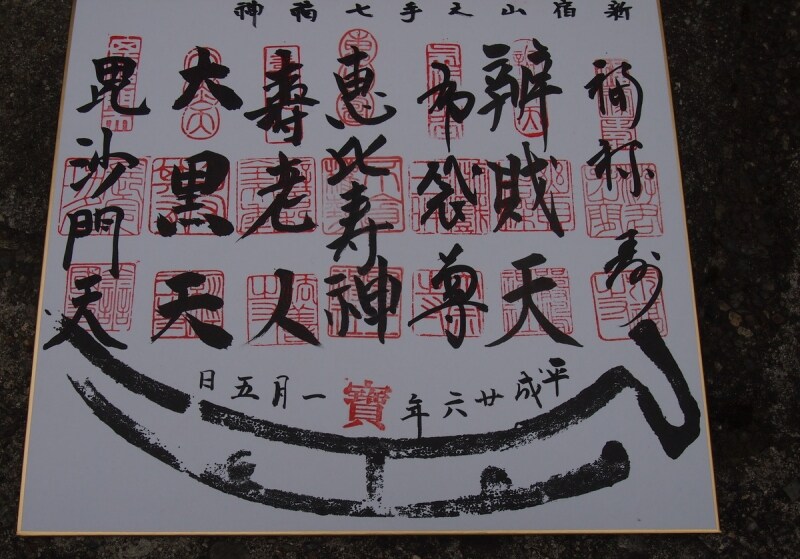 新宿山之手七福神
福禄寿
辨財天
布袋尊
恵比寿神
壽老人
大黒天
毘沙門天
平成廿六年
寶
一月五日